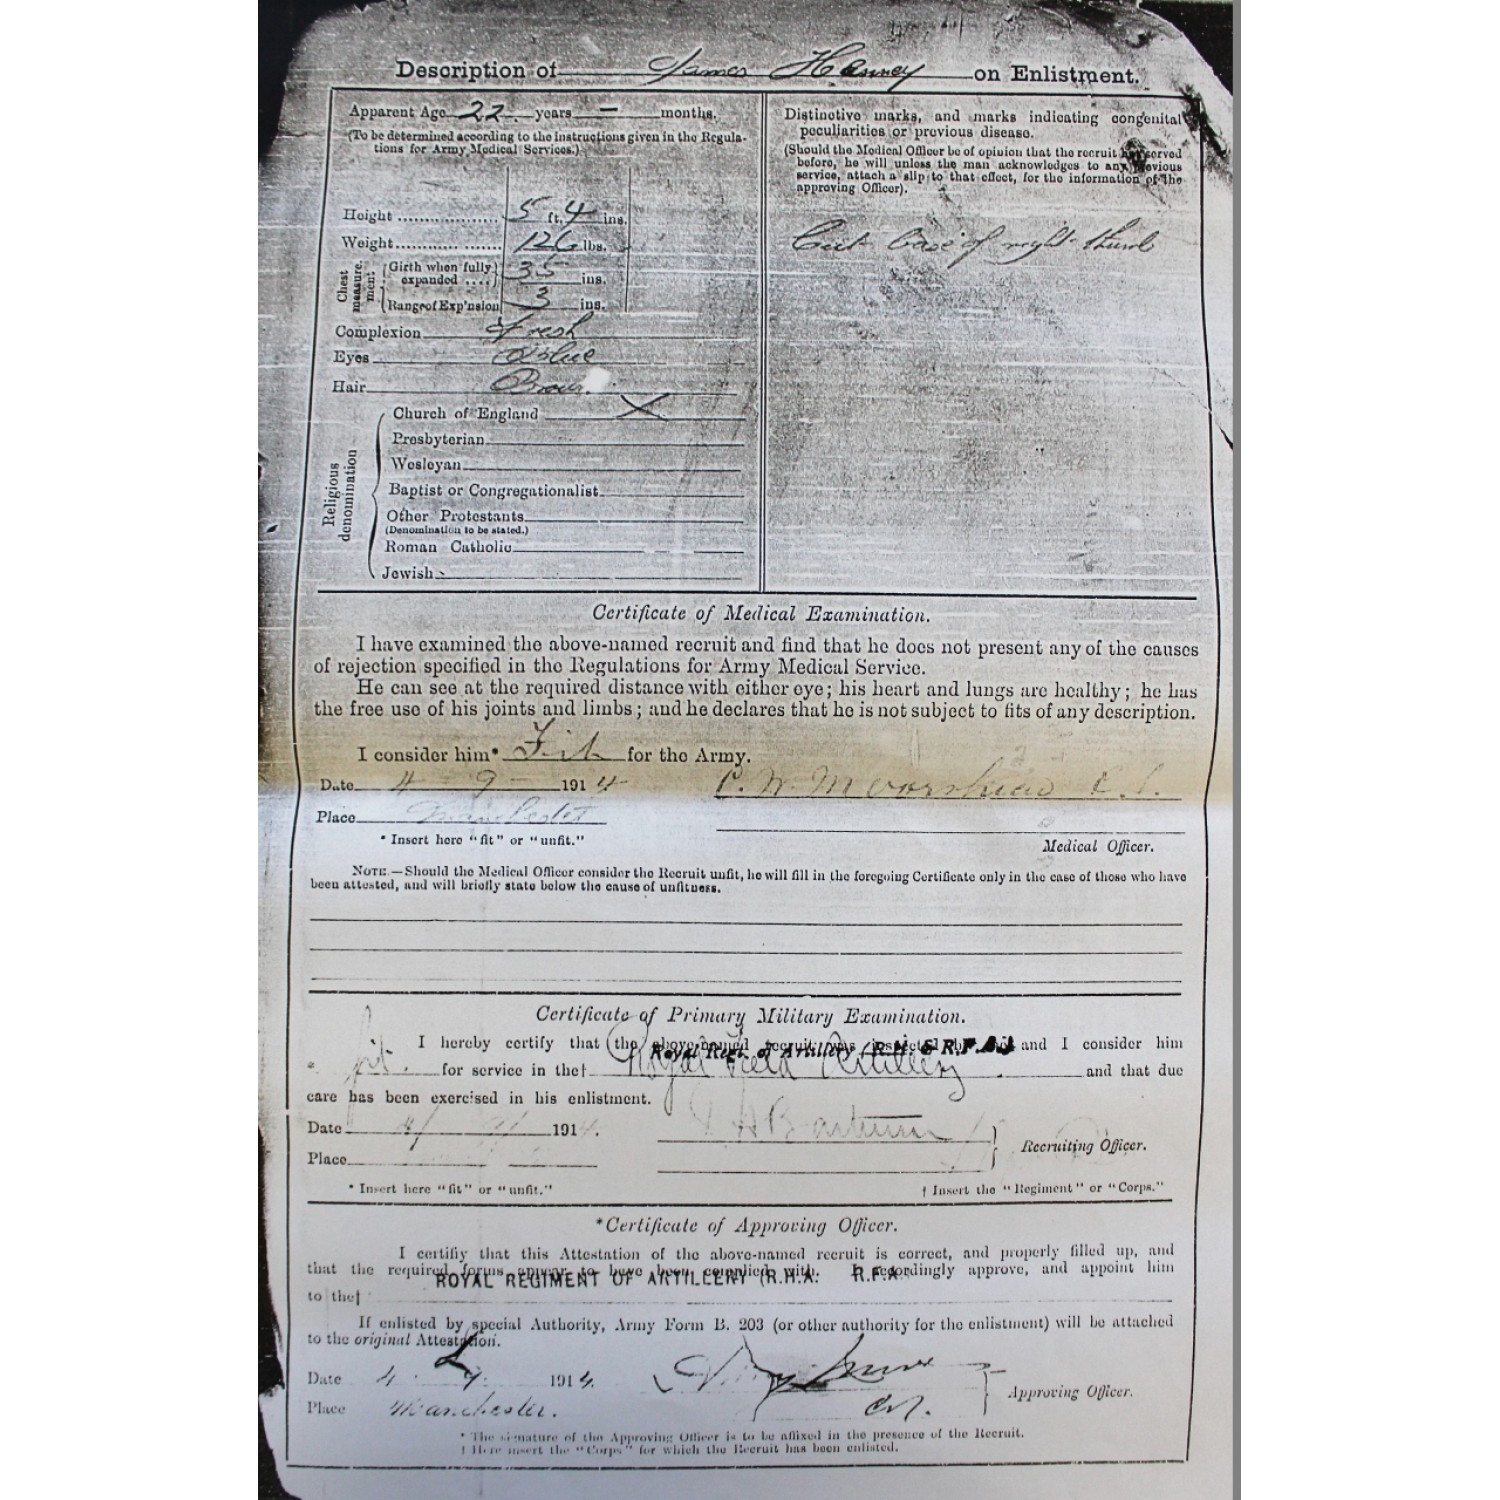 Description of James on Enlistment.
Apparent Age 22 years — months.
(To be determined according to the instructions given in the Regula-
tions for Army Medical Services.)
Height .................. 5 ft. 4 ins.
Weight .................. 126 lbs.
Chest measure-ment
Girth when fully expanded .... 35 ins.
Range of Exp'nsion 3 ins.
Complexion Fresh
Eyes Blue
Hair Brown
Religious denomination
Church of England X
Presbyterian
Wesleyan
Baptist or Congregationalist
Other Protestants
(Denomination to be stated.)
Roman Catholic
Jewish
Distinctive marks, and marks indicating congenital
peculiarities or previous disease.
(Should the Medical Officer be of opinion that the recruit has served
before, he will unless the man acknowledges to any previous
service, attach a slip to that effect, for the information of the
approving Officer).
Cut base of right thumb
Certificate of Medical Examination.
I have examined the above-named recruit and find that he does not present any of the causes
of rejection specified in the Regulations for Army Medical Service.
He can see at the required distance with either eye; his heart and lungs are healthy; he has
the free use of his joints and limbs; and he declares that he is not subject to fits of any description.
I consider him* Fit for the Army.
Date 4 9 1914
Place Manchester
* Insert here "fit" or "unfit."
Medical Officer.
NOTE.—Should the Medical Officer consider the Recruit unfit, he will fill in the foregoing Certificate only in the case of those who have
been attested, and will briefly state below the cause of unfitness.
Certificate of Primary Military Examination.
I hereby certify that the above-named recruit was inspected by and I consider him
Royal Regt. of Artillery (R.H. & R.F.A.)
* fit. for service in the† Royal Field Artillery and that due
care has been exercised in his enlistment.
Date 4/ 1914.
Recruiting Officer.
Place
* Insert here "fit" or "unfit."
† Insert the "Regiment" or "Corps."
*Certificate of Approving Officer.
I certifiy that this Attestation of the above-named recruit is correct, and properly filled up, and
that the required forms appear to have been complied with. I accordingly approve, and appoint him
ROYAL REGIMENT OF ARTILLERY (R.H.A. R.F.A.
to the†
If enlisted by special Authority, Army Form B. 203 (or other authority for the enlistment) will be attached
to the original Attestation.
Date 4. 9. 1914.
Approving Officer.
Place Manchester.
* The signature of the Approving Officer is to be affixed in the presence of the Recruit.
† Here insert the "Corps" for which the Recruit has been enlisted.